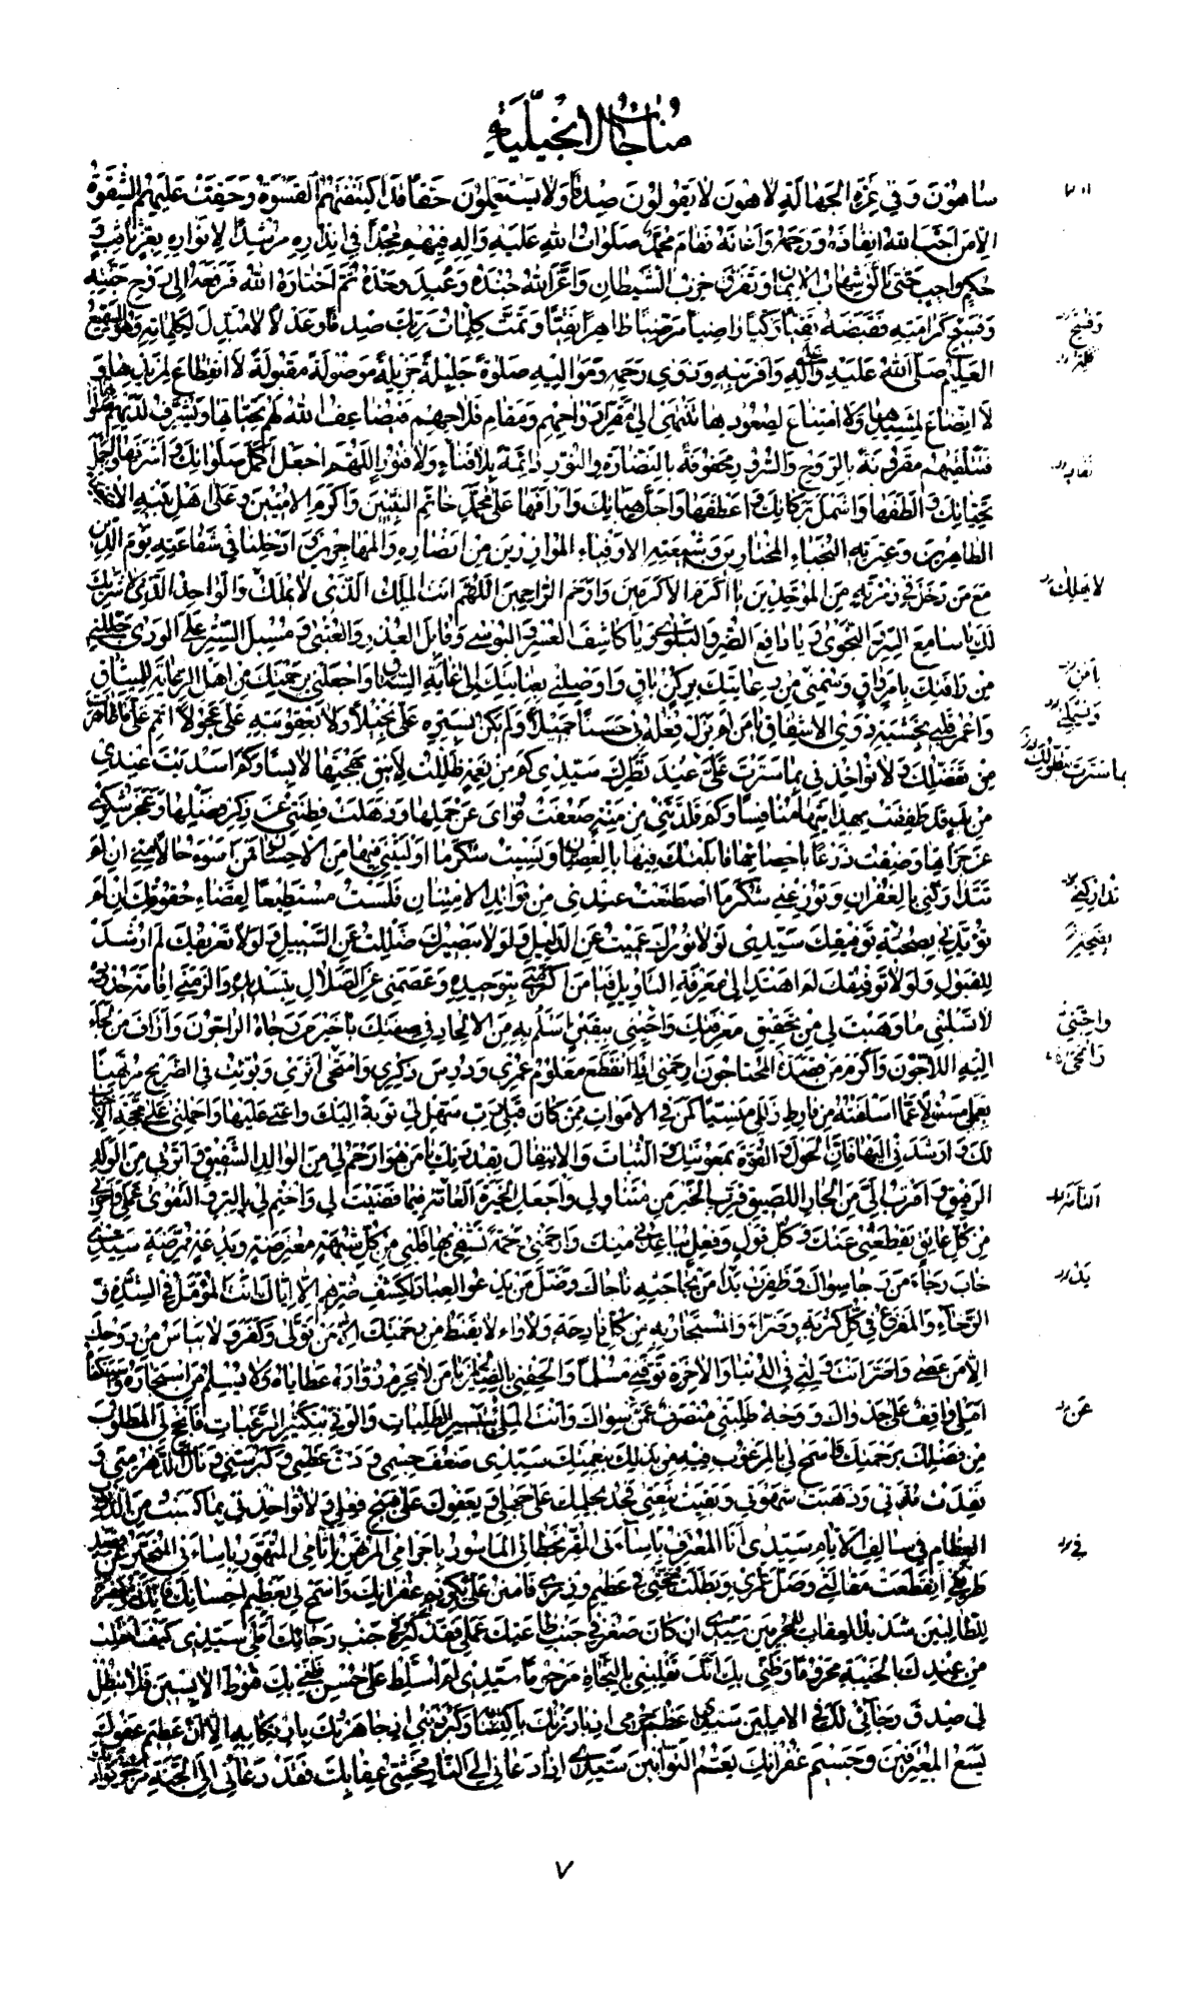 مناجات الانجيلية
ساهون وفي غمرة الجهالة لاهون لا يقولون صدقا ولا يستعملون حقا قد اكتنفتهم القسوة وحقت عليهم الشقوة
الا من احب الله انقاذه ورحمه واعانه فقام محمد صلوات الله عليه واله فيهم مجدا في انذاره مرشدا لانواره بعزم ثاقب و
حكم واجب حتى تالق شهاب الايمان وتفرق حزب الشيطان واعز الله جنده وعبد وحده ثم اختاره الله فرفعه الى روح جنته
وفسيح كرامته فقبضه تقيا زكيا راضيا مرضيا طاهرا نقيا وتمت كلمات ربك صدقا وعدلا لا مبدل لكلماته وهو السميع
العليم صلى الله عليه واله واقربيه وذوي رحمه ومواليه صلوة جليلة جزيلة موصولة مقبولة لا انقطاع لمزيدها و
لا اتضاع لمشيدها ولا امتناع لصعودها تنتهي الى مقر ارواحهم ومقام فلاحهم فيضاعف الله لهم تحياتها ويشرف لديهم صلواتها
فتتلقيهم مقرونة بالروح والسرور محفوفة بالنضارة والنور دائمة بلا فناء ولا فتور اللهم اجعل اكمل صلواتك واشرفها واجمل
تحياتك والطفها واشمل بركاتك واعطفها واجل هباتك وارافها على محمد خاتم النبيين واكرم الاميين وعلى اهل بيته
الطاهرين وعترته النجباء المختارين وشيعته الاوفياء الموازرين من انصاره والمهاجرين وادخلنا في شفاعته يوم الدين
مع من دخل في زمرته من الموحدين يا اكرم الاكرمين وارحم الراحمين اللهم انت الملك الذي لا يملك والواحد الذي لا شريك
لك يا سامع السر والنجوى ويا دافع الضر والبلوى ويا كاشف العسر والبؤسى وقابل العذر والعتبى ومسبل الستر على الورى جللني
من رافتك بامر واق وشملني من رعايتك بركن باق واوصلني بعنايتك الى غاية السباق واجعلني برحمتك من اهل الرعاية للميثاق
واعمر قلبي بخشية ذوي الاشفاق يا من لم يزل فعله بي حسنا جميلا ولم يكن بستره علي بخيلا ولا بعقوبته علي عجولا اتم علي ما ظاهر
من تفضلك ولا تؤاخذني بما سترت علي عند نظرك سيدي كم من نعمة ظللت لانيق بهجتها لابسا وكم اسديت عندي
من يد قد طفقت بهذا بها منافسا وكم قلدتني من منة ضعفت قواى عن حملها وذهلت فطنتي عن ذكر فضلها وعجز شكري
عن جزائها وضقت ذرعا باحصائها قابلتك فيها بالعصيان ونسيت شكر ما اوليتني فيها من الاحسان فمن اسوء حالا مني ان لم
تتداركني بالغفران وتوزعني شكر ما اصطنعت عندي من فوائد الامتنان فلست مستطيعا لقضاء حقوقك ان لم
تؤيدني بصحبة توفيقك سيدي لولا نورك عميت عن الدليل ولولا تبصيرك ضللت عن السبيل ولولا تعريفك لم ارشد
للقبول ولولا توفيقك لم اهتد الى معرفة التاويل فيا من اكرمني بتوحيده وعصمني عن الضلال بتسديده والزمني اقامة حدوده
لا تسلبني ما وهبت لي من تحقيق معرفتك واحيني بيقين اسلم به من الالحاد في صفتك يا خير من رجاه الراجون واراف من لجا
اليه اللاجون واكرم من قصده المحتاجون ارحمني اذا انقطع معلوم عمري ودرس ذكري وامتحى اثري وبوئت في الضريح مرتهنا
بعملي مسئولا عما اسلفته من فارط زللي منسيا كمن في الاموات ممن كان قبلي رب سهل لي توبة اليك واعني عليها واحملني على محجة الاخبات
لك وارشدني اليها فان الحول والقوة بمعونتك والثبات والانتقال بقدرتك يا من هو ارحم لي من الوالد الشفيق وابر بي من الولد
الرفيق واقرب الي من الجار اللصيق قرب الخير من متناولي واجعل الخيرة العامة فيما قضيت لي واختم لي بالبر والتقوى عملي واجرني
من كل عائق يقطعني عنك وكل قول وفعل يباعدني منك وارحمني رحمة تشفي بها قلبي من كل شبهة معترضة وبدعة ممرضة سيدي
خاب رجاء من رجا سواك وظفرت يد من بحاجته ناجاك وضل من يدعو العباد لكشف ضرهم الا اياك انت المؤمل في الشدة و
الرخاء والمفزع في كل كربة وضراء والمستجار به من كل فادحة ولاواء لا يقنط من رحمتك الا من تولى وكفر ولا يياس من روحك
الا من عصى واصر انت وليي في الدنيا والاخرة توفني مسلما والحقني بالصالحين يا من لا يحرم زواره عطاياه ولا يسلم من استجاره واستكفاه
املي واقف على جدواك ووجه طلبتي منصرف عمن سواك وانت الملي بتيسير الطلبات والوفي بتكثير الرغبات فانجح لي المطلوب
من فضلك برحمتك واسمح لي بالمرغوب فيه من بذلك بنعمتك سيدي ضعف جسمي ودق عظمي وكبر سني ونال الدهر مني و
نفدت مدتي وذهبت شهوتي وبقيت تبعتي فجد بحلمك على جهلي وبعفوك على قبيح فعلي ولا تؤاخذني بما كسبت من الذنوب
العظام في سالف الايام سيدي انا المعترف باساءتي المقر بخطائي الماسور باجرامي المرتهن باثامي المتهور باساءتي المتحير عن قصد
طريقي انقطعت مقالتي وضل عمري وبطلت حجتي في عظيم وزري فامنن علي بكريم غفرانك واسمح لي بعظيم احسانك فانك ذو مغفرة
للطالبين شديد العقاب للمجرمين سيدي ان كان صغر في جنب طاعتك عملي فقد كبر في جنب رجائك املي سيدي كيف انقلب
من عندك بالخيبة محروما وظني بك انك تقلبني بالنجاة مرحوما سيدي لم اسلط على حسن ظني بك قنوط الايسين فلا تبطل
لي صدق رجائي لك في الاملين سيدي عظم جرمي اذ بارزتك باكتسابه وكبر ذنبي اذ جاهرتك بارتكابه الا ان عظيم عفوك
يسع المعترفين وجسيم غفرانك يعم التوابين سيدي ان دعاني الى النار مخشي عقابك فقد دعاني الى الجنة مرجو ثوابك
وفسح
لا يملك
يا من
تداركني
واحيني
التامة
يد
عن
في
٧